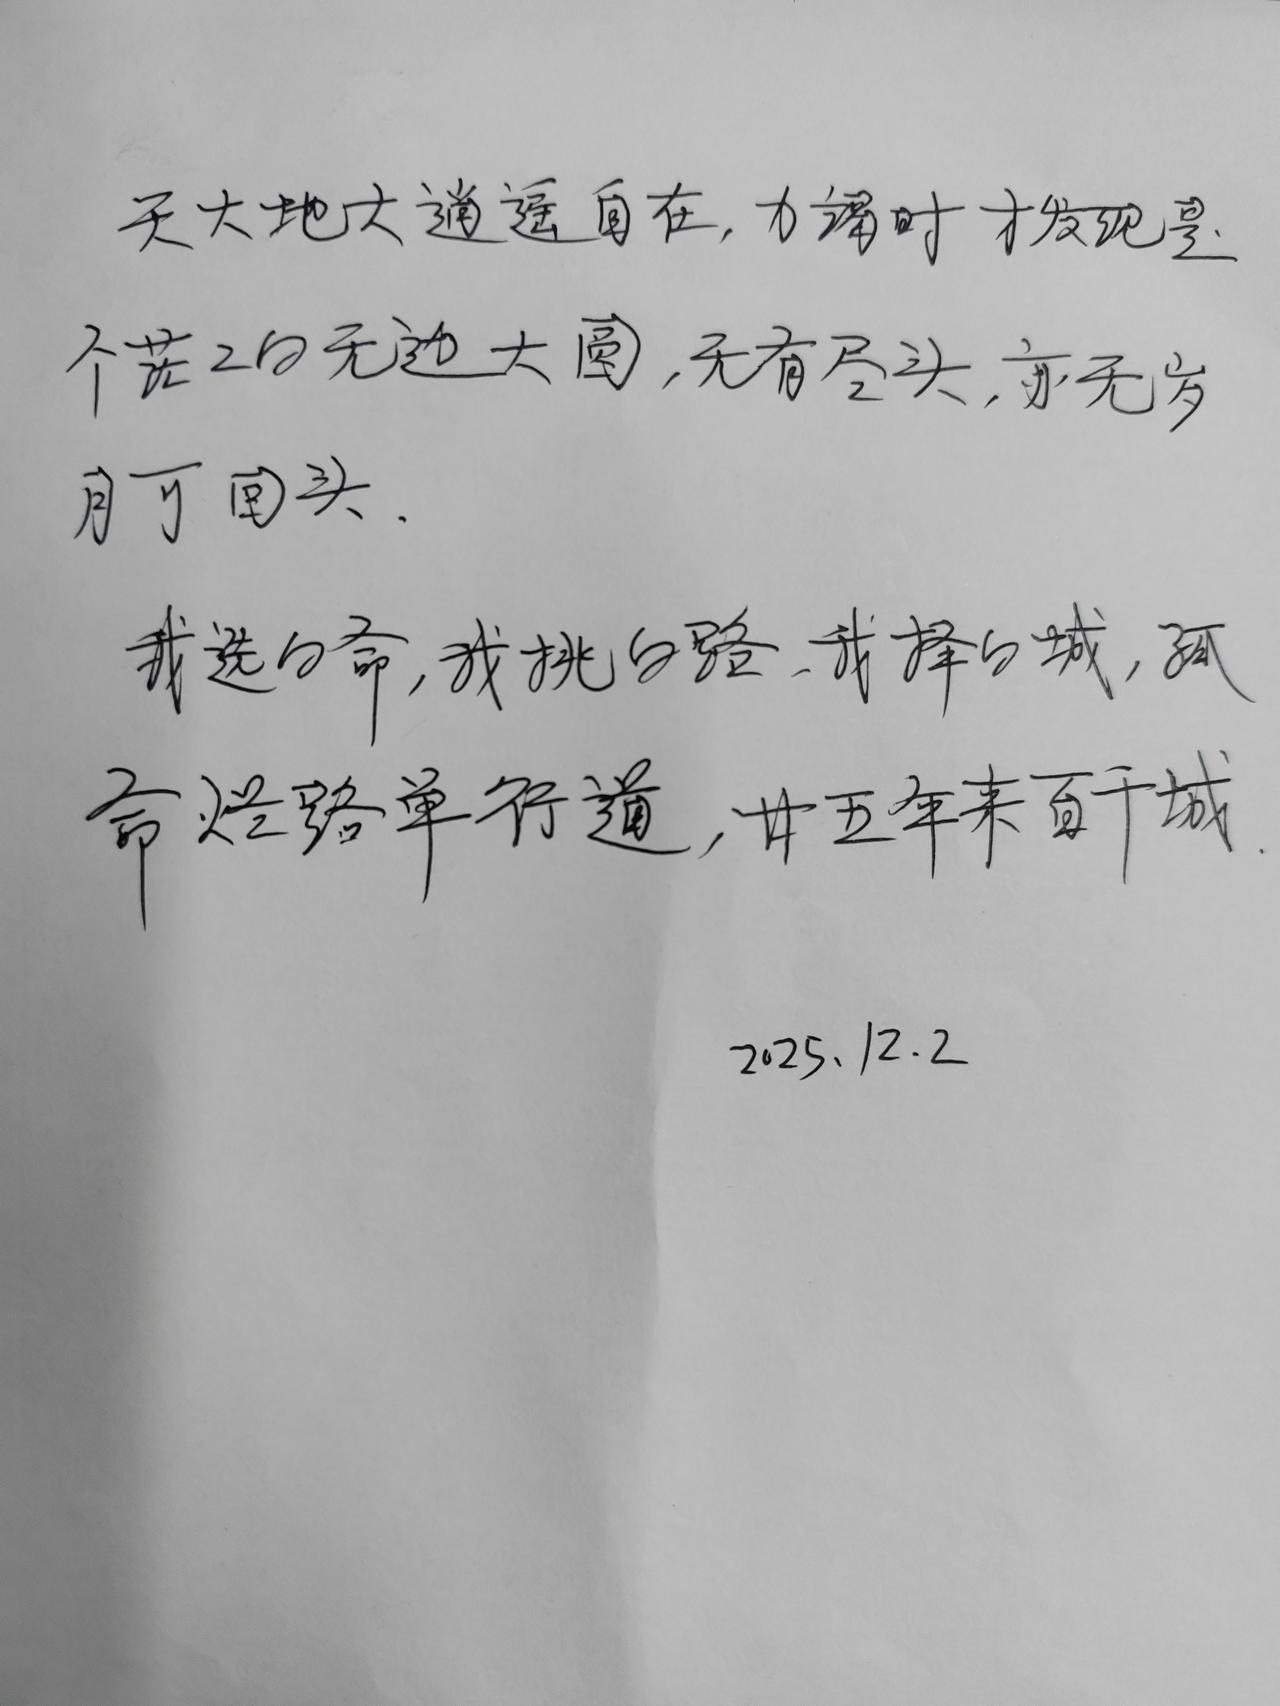 天大地大逍遥自在,力竭时才发现是
个茫々的无边大圆,无有尽头,亦无岁
月可回头.
我选的命,我挑的路、我择的城,孤
命烂路单行道,廿五年来百千城.
2025.12.2